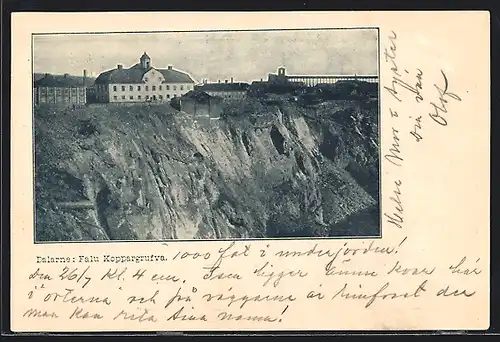 Dalarne: Falu Koppargrufva.
1000 fot i underjorden!
den 26/7 kl. 4 em. Isen ligger ännu kvar här
i orterna och på väggarne är rimfrost der
man kan rita sina namn!
Helsn Mor & Syskon
din vän
Olof